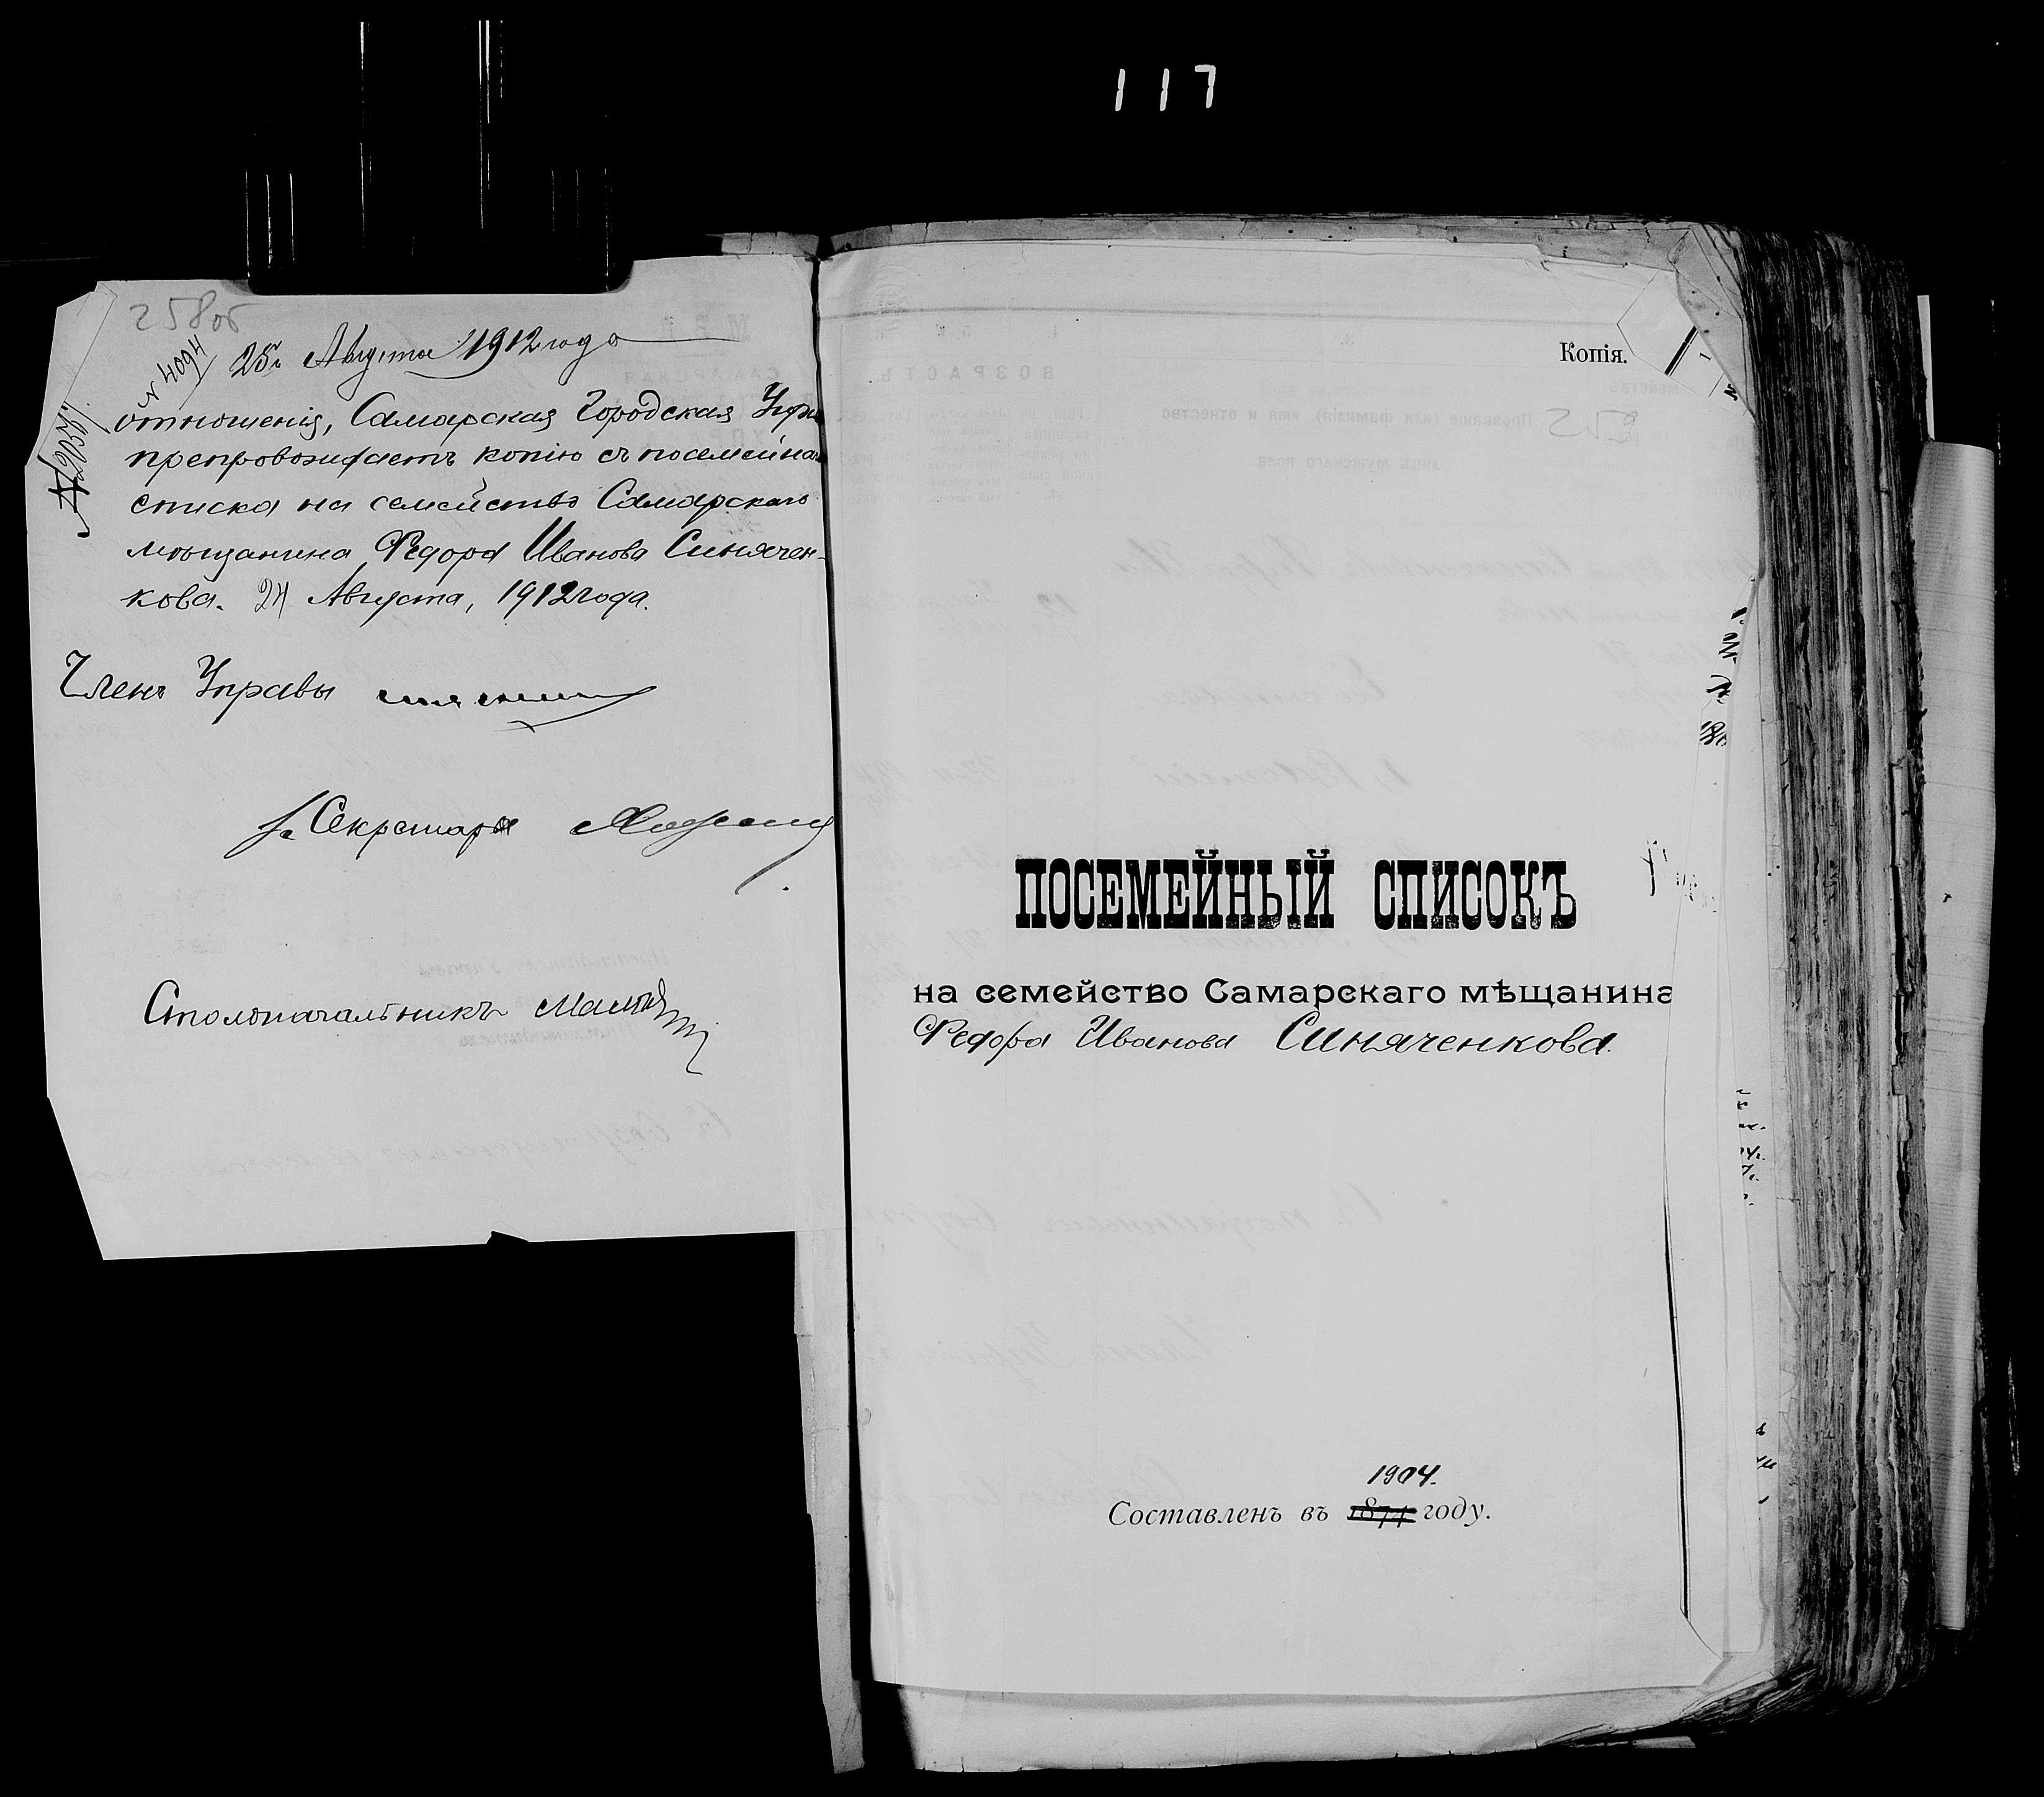 117
258об
25го Августа 1912 года
№ 4094
отношенія, Самарская Городская Упра
препровождаетъ копію съ посемейна
списка на семейство Самарскаго
мѣщанина Федора Иванова Синячен-
кова. 24 Августа, 1912 года.
Членъ Управы
Секретаря
Столоначальникъ
Копія.
259
ПОСЕМЕЙНЫЙ СПИСОКЪ
на семейство Самарскаго мѣщанина
Федора Иванова Синяченкова.
1904.
Составленъ въ 1874 году.